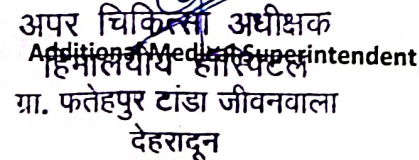 अपर चिकित्सा अधीक्षक
Additional Medical Superintendent
हिमालयीय हॉस्पिटल
ग्रा. फतेहपुर टांडा जीवनवाला
देहरादून